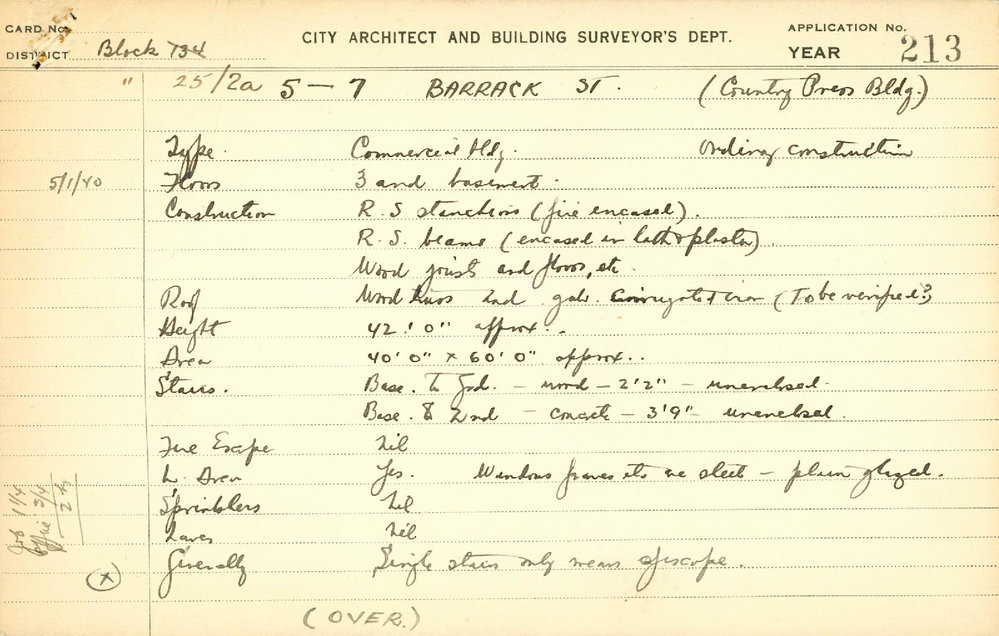 CARD No.
CITY ARCHITECT AND BUILDING SURVEYOR'S DEPT.
APPLICATION No.
DISTRICT Block 734
YEAR 213
" 25/2a 5 — 7 BARRACK ST. (Country Press Bldg.)
Type. Commercial bldg. Ordinary construction
5/1/40 Floors 3 and basement.
Construction R.S stanchions (fire encased).
R.S. beams (encased in lath & plaster).
Wood joists and floors, etc.
Roof Wood truss and galv. corrugated iron (To be verified?)
Height 42'0" approx..
Area 40'0" x 60'0" approx..
Stairs. Base. to Grd. — wood — 2'2" — unenclosed.
Base. to 2nd — concrete — 3'9" — unenclosed.
Fire Escape Nil
L. Area Yes. Windows frames etc are steel — plain glazed.
Sprinklers Nil
Laves Nil
Generally Single stairs only means of escape.
Job 1 1/4
Office 3/4
2 h
(x)
(OVER.)